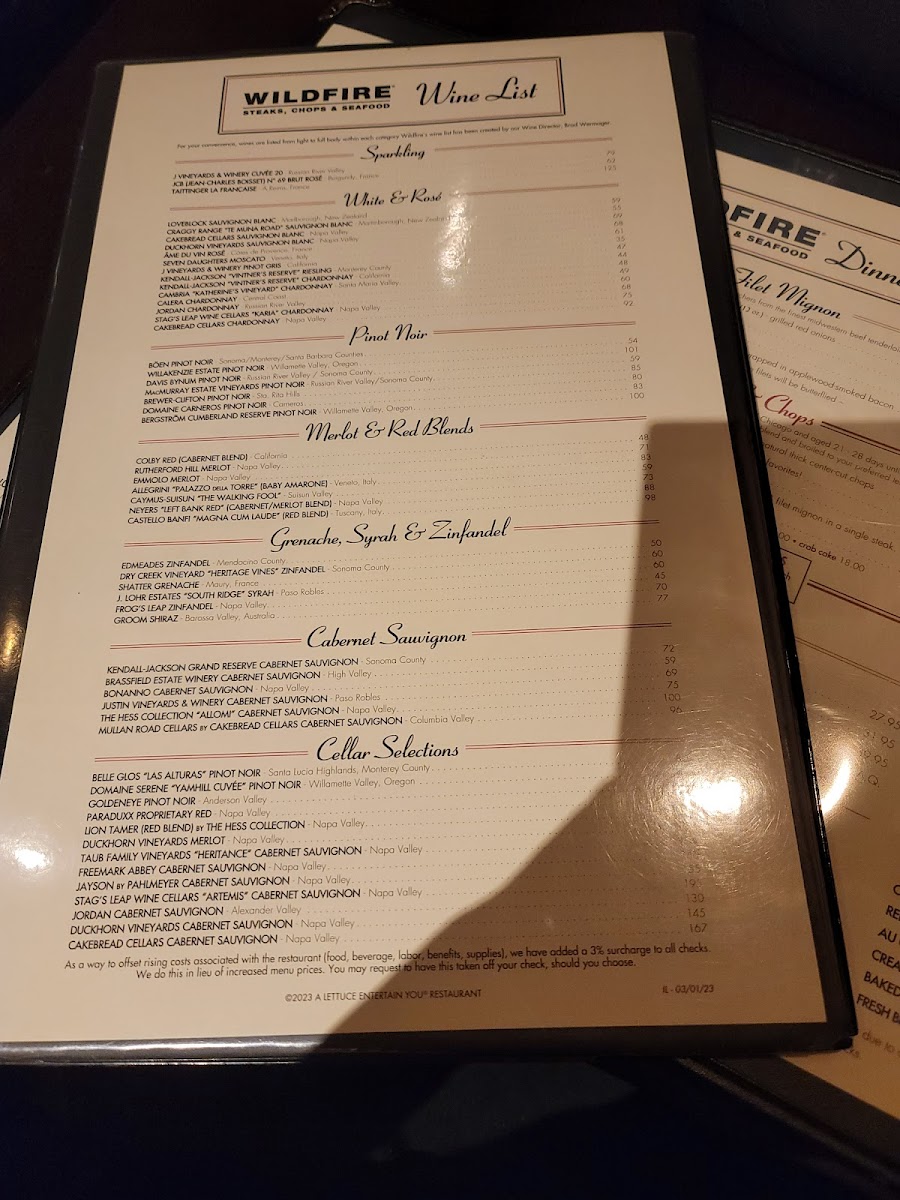 WILDFIRE Wine List
STEAKS, CHOPS & SEAFOOD
For your convenience, wines are listed from light to full body within each category. Wildfire's wine list has been created by our Wine Director, Brad Wermager.
Sparkling
J VINEYARDS & WINERY CUVÉE 20 - Russian River Valley 79
JCB (JEAN-CHARLES BOISSET) N° 69 BRUT ROSÉ - Burgundy, France 62
TAITTINGER LA FRANÇAISE - Reims, France 123
White & Rosé
LOVEBLOCK SAUVIGNON BLANC - Marlborough, New Zealand 59
CRAGGY RANGE "TE MUNA ROAD" SAUVIGNON BLANC - Martinborough, New Zealand 55
CAKEBREAD CELLARS SAUVIGNON BLANC - Napa Valley 69
DUCKHORN VINEYARDS SAUVIGNON BLANC - Napa Valley 68
ÂME DU VIN ROSÉ - Côtes de Provence, France 61
SEVEN DAUGHTERS MOSCATO - Veneto, Italy 35
J VINEYARDS & WINERY PINOT GRIS - California 47
KENDALL-JACKSON "VINTNER'S RESERVE" RIESLING - Monterey County 44
KENDALL-JACKSON "VINTNER'S RESERVE" CHARDONNAY - California 48
CAMBRIA "KATHERINE'S VINEYARD" CHARDONNAY - Santa Maria Valley 49
CALERA CHARDONNAY - Central Coast 60
JORDAN CHARDONNAY - Russian River Valley 68
STAG'S LEAP WINE CELLARS "KARIA" CHARDONNAY - Napa Valley 75
CAKEBREAD CELLARS CHARDONNAY - Napa Valley 92
Pinot Noir
BÖEN PINOT NOIR - Sonoma/Monterey/Santa Barbara Counties 54
WILLAKENZIE ESTATE PINOT NOIR - Willamette Valley, Oregon 101
DAVIS BYNUM PINOT NOIR - Russian River Valley / Sonoma County 59
MACMURRAY ESTATE VINEYARDS PINOT NOIR - Russian River Valley/Sonoma County 85
BREWER-CLIFTON PINOT NOIR - Sta. Rita Hills 80
DOMAINE CARNEROS PINOT NOIR - Carneros 83
BERGSTRÖM CUMBERLAND RESERVE PINOT NOIR - Willamette Valley, Oregon 100
Merlot & Red Blends
COLBY RED (CABERNET BLEND) - California 48
RUTHERFORD HILL MERLOT - Napa Valley 71
EMMOLO MERLOT - Napa Valley 83
ALLEGRINI "PALAZZO DELLA TORRE" (BABY AMARONE) - Veneto, Italy 59
CAYMUS-SUISUN "THE WALKING FOOL" - Suisun Valley 73
NEYERS "LEFT BANK RED" (CABERNET/MERLOT BLEND) - Napa Valley 88
CASTELLO BANFI "MAGNA CUM LAUDE" (RED BLEND) - Tuscany, Italy 98
Grenache, Syrah & Zinfandel
EDMEADES ZINFANDEL - Mendocino County 50
DRY CREEK VINEYARD "HERITAGE VINES" ZINFANDEL - Sonoma County 60
SHATTER GRENACHE - Maury, France 60
J. LOHR ESTATES "SOUTH RIDGE" SYRAH - Paso Robles 45
FROG'S LEAP ZINFANDEL - Napa Valley 70
GROOM SHIRAZ - Barossa Valley, Australia 77
Cabernet Sauvignon
KENDALL-JACKSON GRAND RESERVE CABERNET SAUVIGNON - Sonoma County 72
BRASSFIELD ESTATE WINERY CABERNET SAUVIGNON - High Valley 59
BONANNO CABERNET SAUVIGNON - Napa Valley 69
JUSTIN VINEYARDS & WINERY CABERNET SAUVIGNON - Paso Robles 75
THE HESS COLLECTION "ALLOMI" CABERNET SAUVIGNON - Napa Valley 100
MULLAN ROAD CELLARS BY CAKEBREAD CELLARS CABERNET SAUVIGNON - Columbia Valley 96
Cellar Selections
BELLE GLOS "LAS ALTURAS" PINOT NOIR - Santa Lucia Highlands, Monterey County
DOMAINE SERENE "YAMHILL CUVÉE" PINOT NOIR - Willamette Valley, Oregon
GOLDENEYE PINOT NOIR - Anderson Valley
PARADUXX PROPRIETARY RED - Napa Valley
LION TAMER (RED BLEND) BY THE HESS COLLECTION - Napa Valley
DUCKHORN VINEYARDS MERLOT - Napa Valley
TAUB FAMILY VINEYARDS "HERITANCE" CABERNET SAUVIGNON - Napa Valley
FREEMARK ABBEY CABERNET SAUVIGNON - Napa Valley
JAYSON BY PAHLMEYER CABERNET SAUVIGNON - Napa Valley
STAG'S LEAP WINE CELLARS "ARTEMIS" CABERNET SAUVIGNON - Napa Valley
JORDAN CABERNET SAUVIGNON - Alexander Valley 130
DUCKHORN VINEYARDS CABERNET SAUVIGNON - Napa Valley 145
CAKEBREAD CELLARS CABERNET SAUVIGNON - Napa Valley 167
As a way to offset rising costs associated with the restaurant (food, beverage, labor, benefits, supplies), we have added a 3% surcharge to all checks.
We do this in lieu of increased menu prices. You may request to have this taken off your check, should you choose.
©2023 A LETTUCE ENTERTAIN YOU® RESTAURANT
IL - 03/01/23
DFIRE Dinn
& SEAFOOD
Filet Mignon
from the finest midwestern beef tenderloin
grilled red onions
wrapped in applewood-smoked bacon
filets will be butterflied
Chops
Chicago and aged 21 - 28 days until
and broiled to your preferred
natural thick center-cut chops
favorites!
filet mignon in a single steak
• crab cake 18.00
27.95
31.95
BAKED
FRESH B
due to